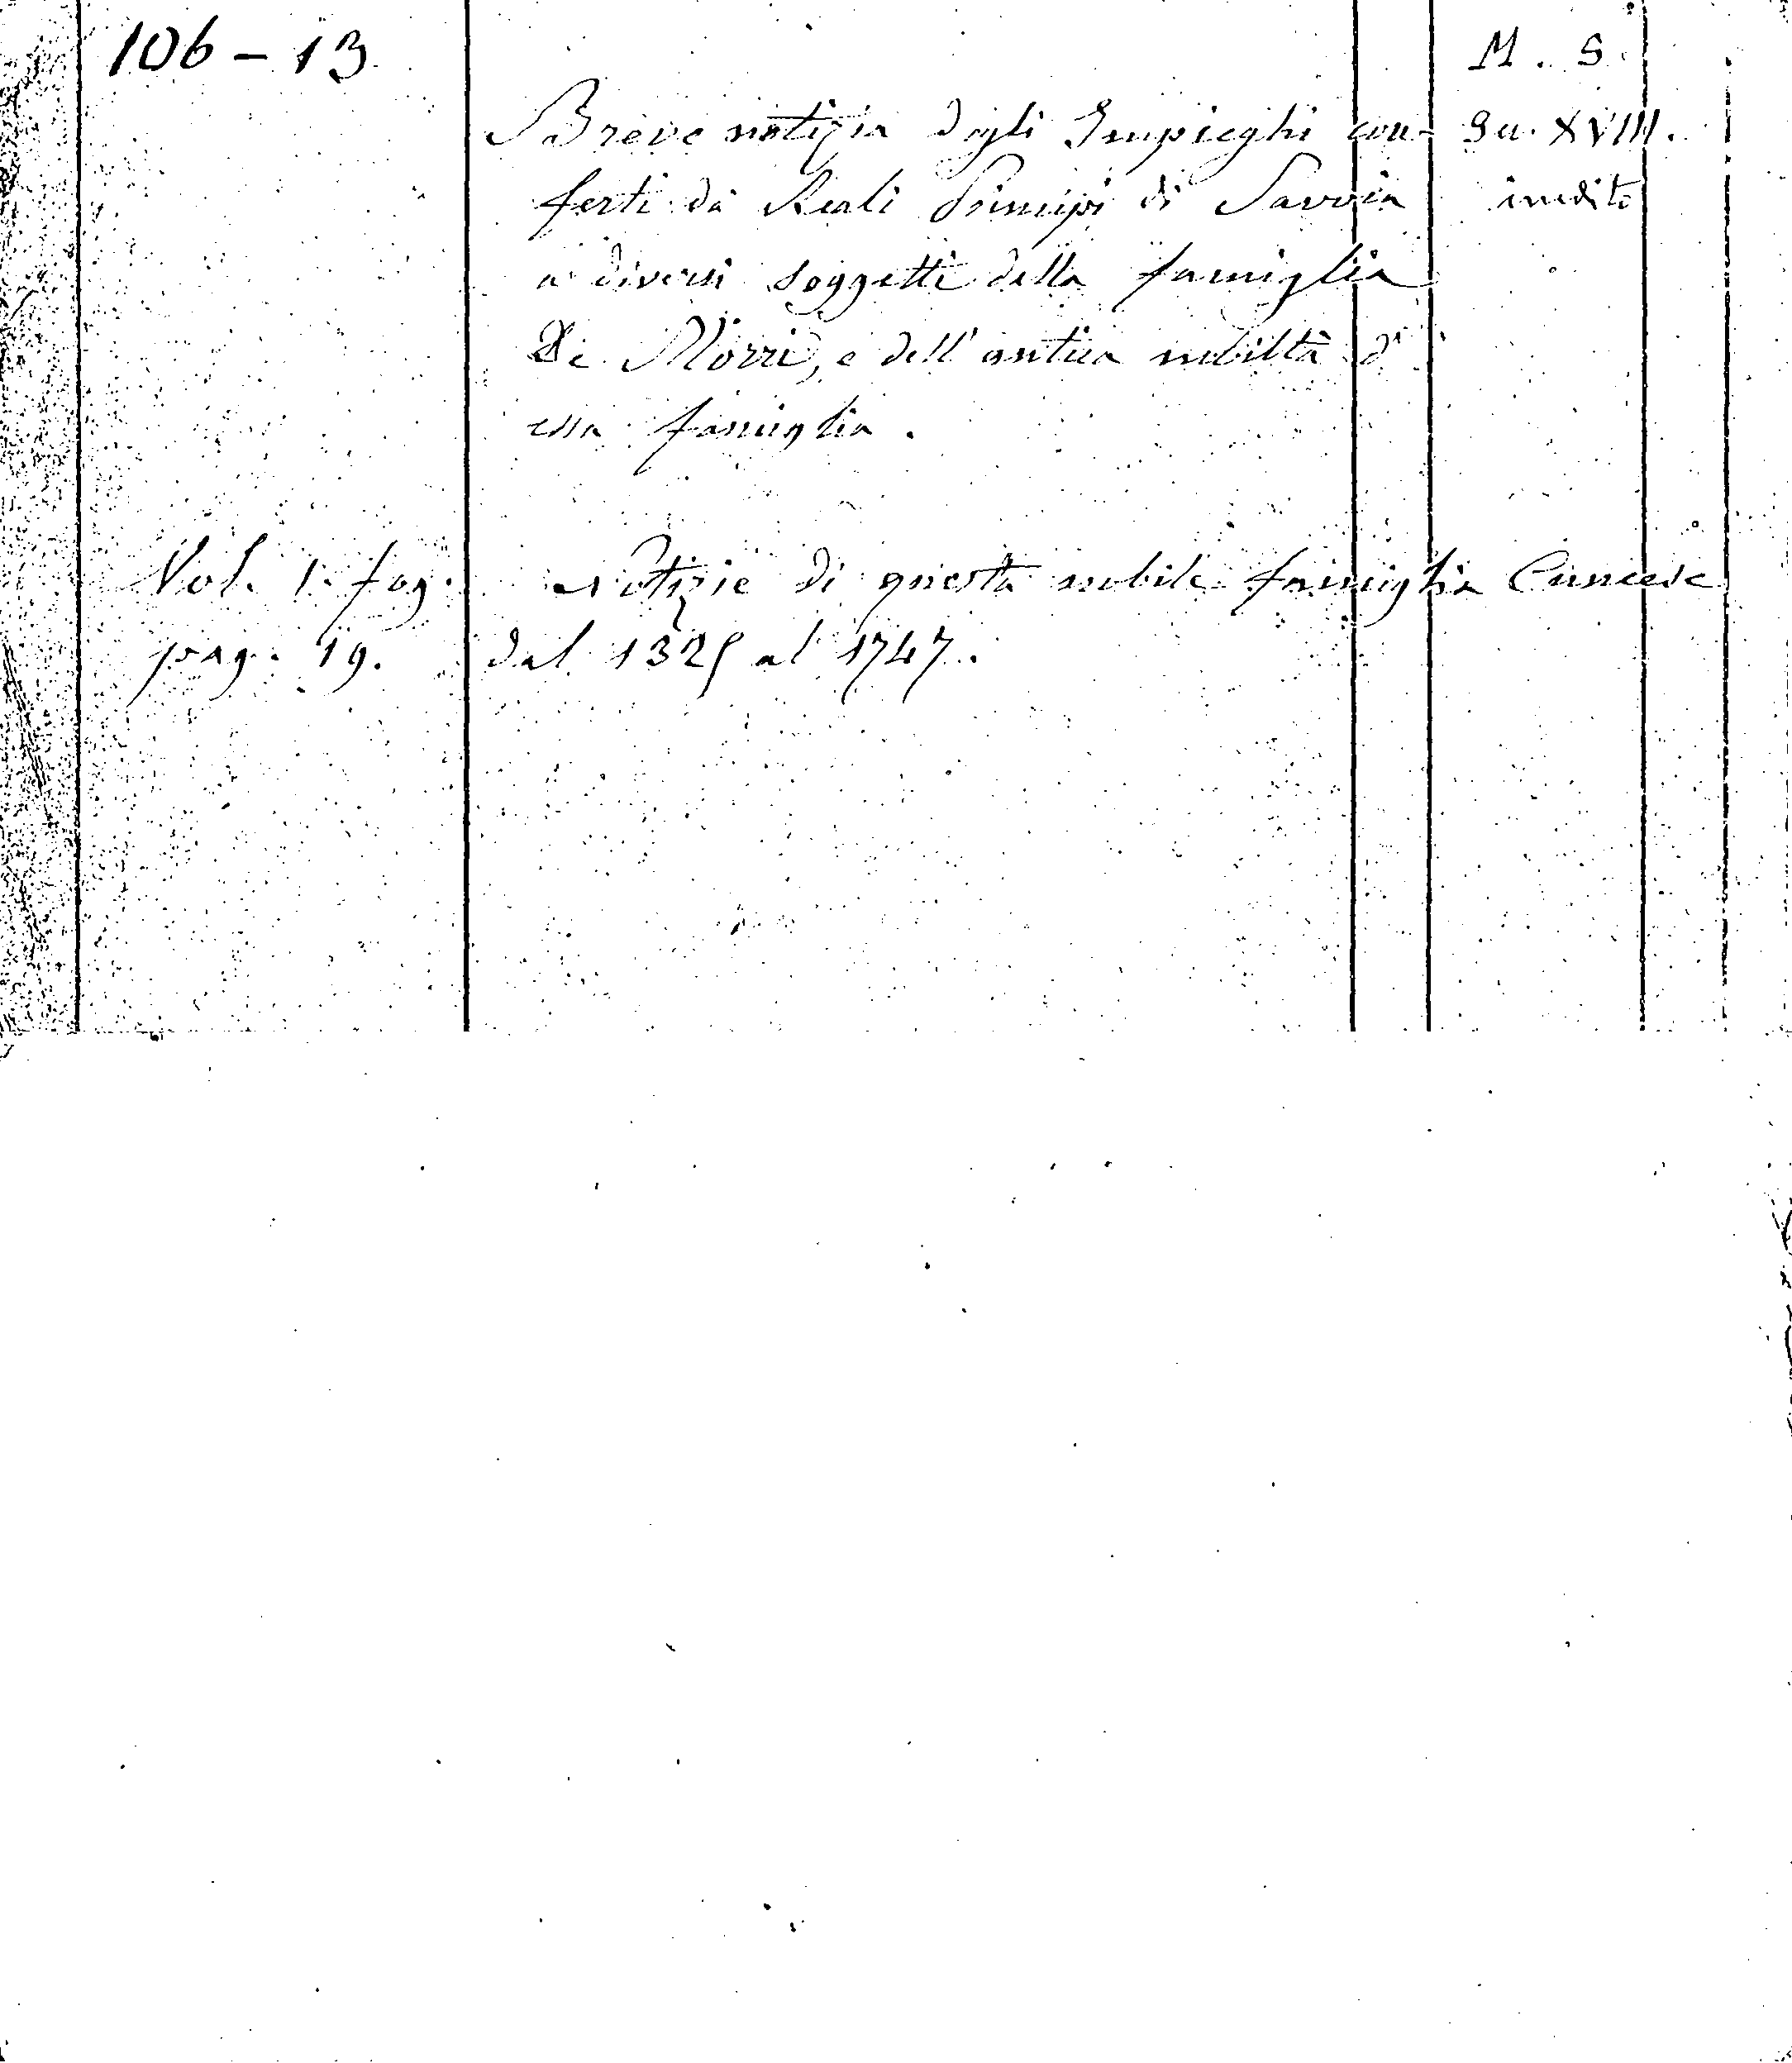 106 – 13
M. S.
Breve notizia degli Impieghi con-
Sec. XVIII.
ferti da Reali Principi di Savoia
inedito
a diversi soggetti della famiglia
De Morri, e dell'antica nobiltà di
essa famiglia.
Vol. 1. fog.
Notizie di questa nobile famiglia Cuneese
pag. 19.
dal 1325 al 1747.